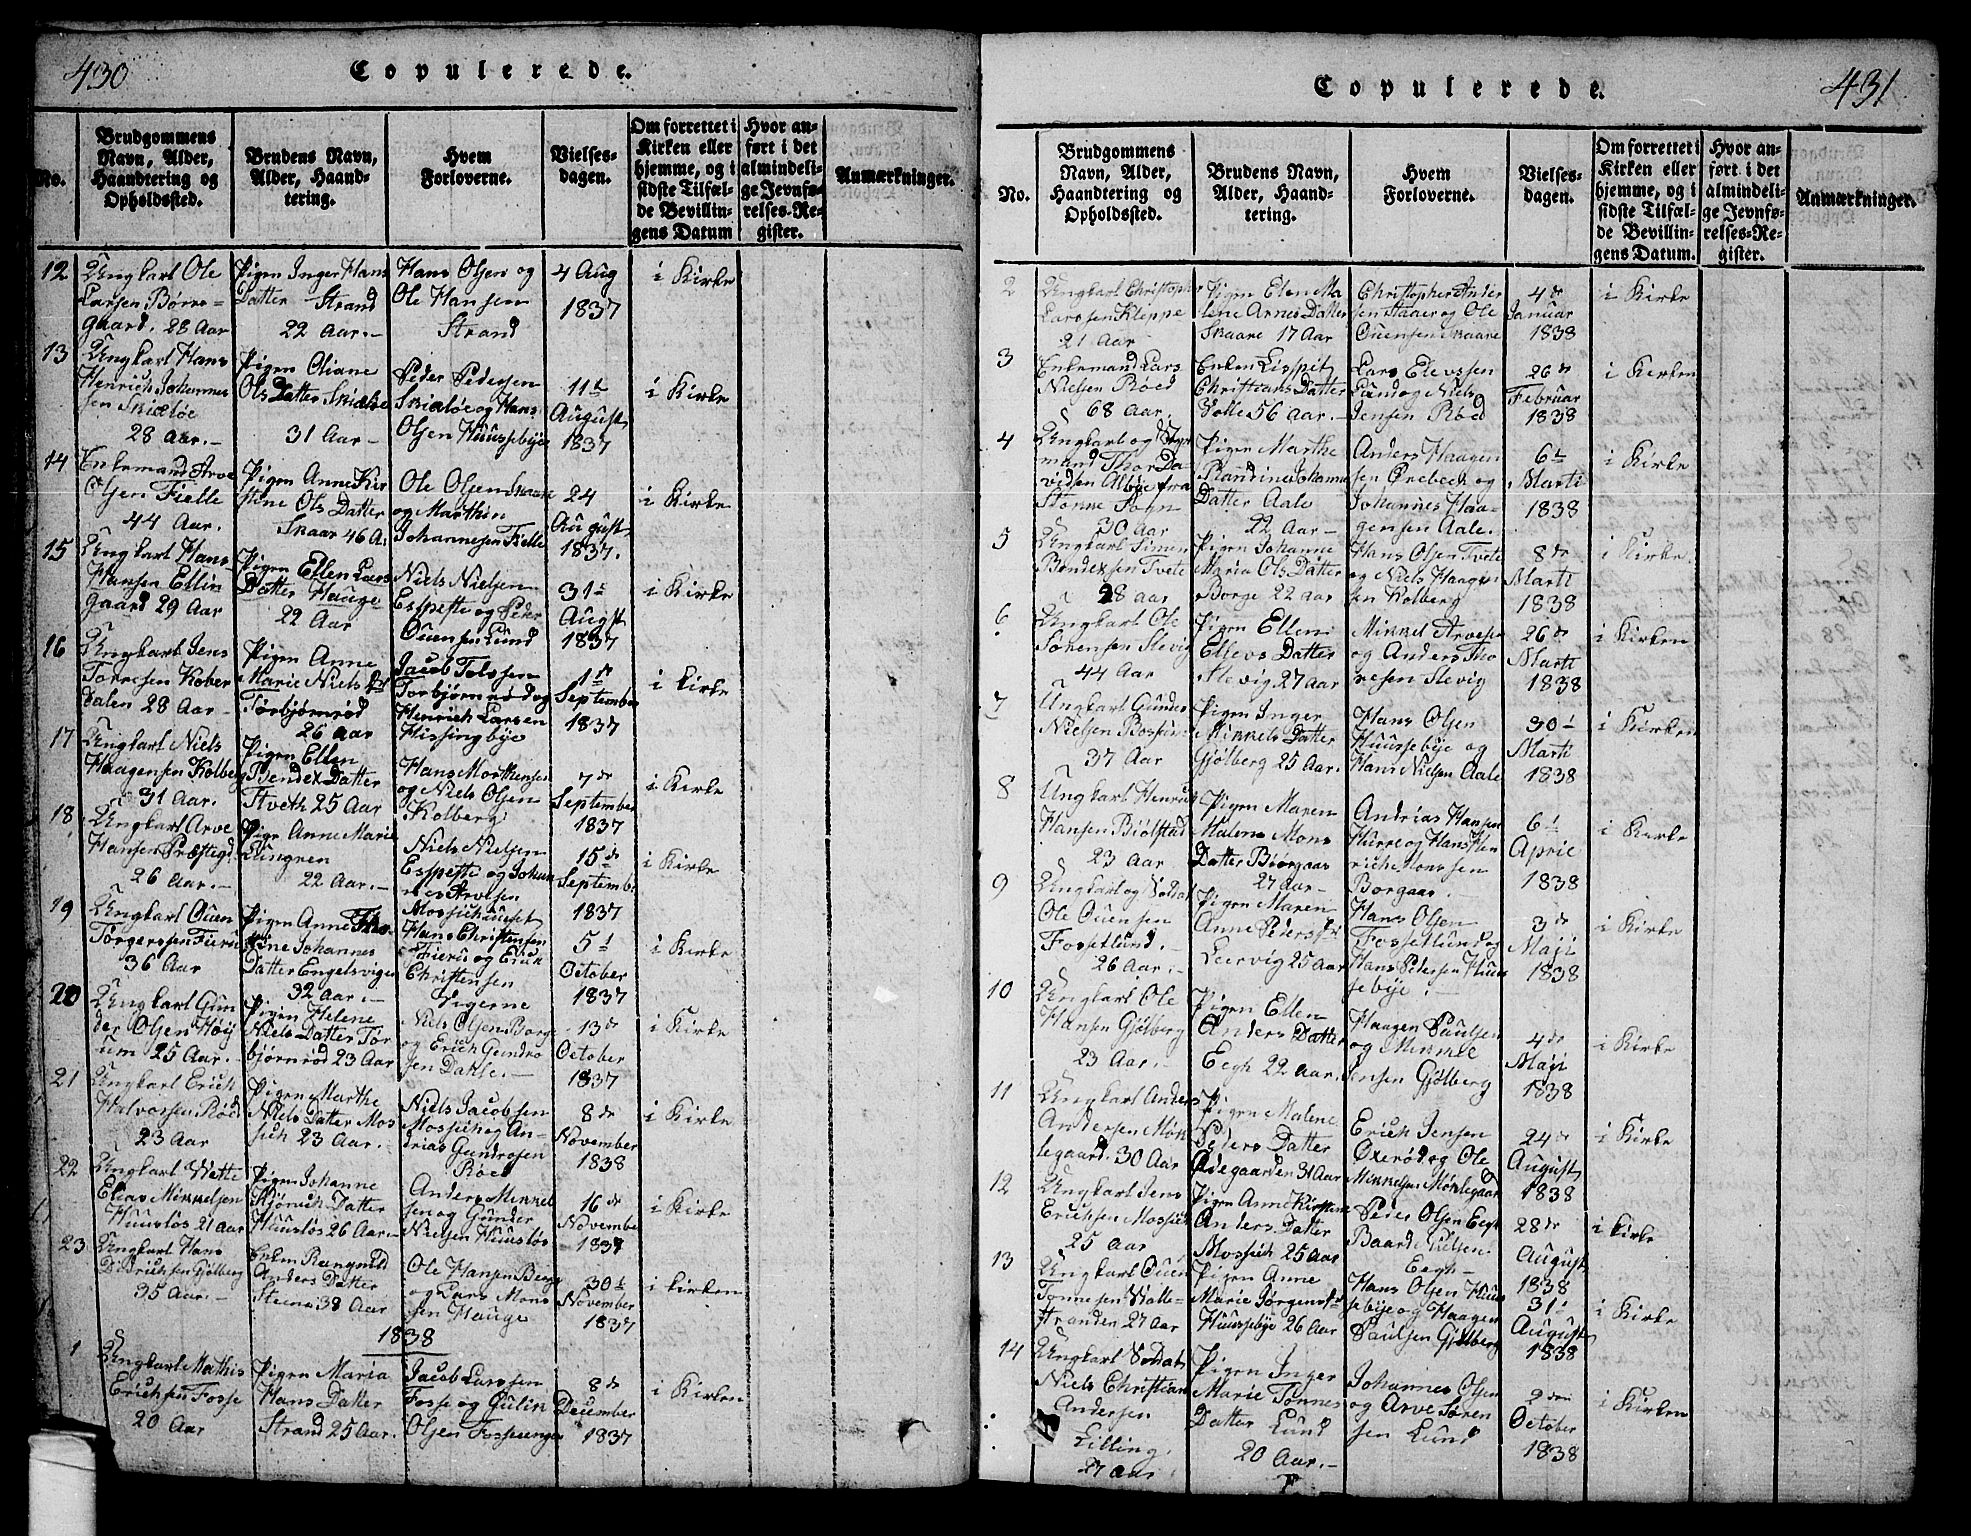 430
Copulerede.
No.
Brudgommens
Navn, Alder,
Haandtering og
Opholdssted.
Brudens Navn,
Alder, Haand-
tering.
Hvem
Forloverne.
Vielses-
dagen.
Om forrettet i
Kirken eller
hjemme, og i
sidste Tilfæl-
de Bevillin-
gens Datum
Hvor an-
ført i det
almindeli-
ge Jevnfø-
relses-Re-
gister.
Anmærkninger.
12
Ungkarl Ole
Larsen Børre-
gaard. 28 Aar
Pigen Inger Hans
Datter Strand
22 Aar.-
Hans Olsen og
Ole Hansen
Strand
4 Aug
1837
i Kirke
13
Ungkarl Hans
Henrich Johannes
sen Skiæløe
28 Aar.-
Pigen Oliane
Ols Datter Skiæløe
31 Aar-
Peder Pedersen
Skiæløe og Hans
Olsen Huussebÿe
11te
August
1837
i Kirke
14
Enkemand Arve
Olsen Fielle
44 Aar.
Pigen Anne Kir
stine Ols Datter
Skaar 46 A.
Ole Olsen Skaare
og Marthin
Johannesen Fielle
24
August
1837.
i Kirke
15
Ungkarl Hans
Hansen Ellin
gaard 29 Aar
Pigen Ellen Lars
Datter Hauge
22 Aar
Niels Nielsen
Esspette og Peder
Ouensen Lund
31te
Augst
1837
i Kirke
16
Ungkarl Jens
Torresen Kober
dalen 28 Aar-
Pigen Anne
Marie Niels Dr
Torbjørnrød
26 aar
Jacob Tolssen
Torbjørnrød og
Henrich Larsen
Hissingbÿe
1ste
September
1837
i kirke
17
Ungkarl Niels
Haagensen Kolberg
31 Aar.
Pigen Ellen
Bendex Datter
Tveth 25 Aar
Hans Morthensen
og Niels Olsen
Kolberg
7de
September
1837
i Kirke
18
Ungkarl Arve
Hansen Præstegd
26 Aar.-
Pign Anne Marie
Lungren
22 Aar.-
Niels Nielsen
Esspette og Johan
nes Arvesen
Mossichuuset
15de
Septemb:
1837
i Kirke
19
Ungkarl Ouen
Torgerssen Fieru
36 Aar
Pigen Anne Tho-
rine Johannes
Datter Engelsvigen
32 Aar.-
Hans Christensen
Fieru og Erick
Christensen
5te
October
1837
i Kirke
20
Ungkarl Gun
der Olsen Høÿ
um 25 Aar.-
Pigen Helene
Niels Datter Tor
bjørnrød 23 Aar
Niels Olsen Borge
og Erich Gundro
sen Dahle.-
13de
October
1837
i Kirke
21
Ungkarl Erich
Halvorsen Røed
23 Aar
Pigen Marthe
Niels Datter Mos
sich 23 Aar.
Niels Jacobsen
Mossich og An-
drias Gundrosen
Røed
8de
November
1838
i Kirke
22
Ungkarl
Elias Mikkelsen
Huusløs 21 aar
Pigen Johanne
Datter
Huusløs 26 Aar.-
Anders Mikkel
sen og Gunder
Nielsen Huusløs
16de
November
1837
i Kirke
23
Ungkarl Hans
Didrichsen Gjølberg
35 Aar.-
Enken Rangnild
Anders Datter
Steine 38 Aar
Ole Hansen Berg
og Lars Mons
sen Hauge
30te
November
1837
i kirken
1838
1
Ungkarl Mathis
Erichsen Fosse
20 Aar
Pigen Maria
Hans Datter
Strand 25 Aar.
Jacob Larssen
Fosse og Gulik
Olsen Fosseenge
8de
December
1837
i Kirken
431
Copulerede.
No.
Brudgommens
Navn, Alder,
Haandtering og
Opholdssted.
Brudens Navn,
Alder, Haand-
tering.
Hvem
Forloverne.
Vielses-
dagen.
Om forrettet i
Kirken eller
hjemme, og i
sidste Tilfæl-
de Bevillin-
gens Datum.
Hvor an-
ført i det
almindeli-
ge Jevnfø-
relses-Re-
gister.
Anmærkninger.
2
Ungkarl Christopher
Larssen Kleppe
21 Aar
Pigen Elen Ma
lene Arnes Datter
Skaare 17 Aar
Christopher Ander
sen Skaare og Ole
Ouensen Skaare
4de
Januar
1838
i Kirke
3
Enkemand Lars
Nielsen Røed
68 Aar.
Enken Lisspit
Christians Datter
56 Aar.-
Lars Elevssen
Lund og Niels
Jensen Røed
26de
Februar
1838
i Kirken
4
Ungkarl og Styr
mand Thor Da
vidsen Albÿe fra
Stønne Sogn
30 Aar
Pigen Marthe
Blandina Johanne
Datter Aale
22 Aar-
Anders Haagen
sen Ørebeck og
Johannes Haa-
gensen Aale.
6te
Marti
1838
i Kirke
5
Ungkarl Simen
Bendexsen Tvete
28 aar
Pigen Johanne
Maria Ols Datter
Borge 22 aar
Hans Olsen Tvete
og Niels Haagen
sen Kolberg
8de
Marti
1838
i Kirke
6
Ungkarl Ole
Sørensen Slevig
44 Aar
Pigen Ellen
Ellevs Datter
Slevig 27 aar
Mikkel Arvesen
og Anders Tho
resen Slevig
26de
Marti
1838
i Kirken
7
Ungkarl Gunder
Nielsen Bossum
37 Aar
Pigen Inger
Mikkels Datter
Gjølberg 25 Aar.
Hans Olsen
Huussebÿe og
Hans Nielsen Aale
30te
Marti
1838
i Kirken
8
Ungkarl Henrick
Hansen Biølstad
23 Aar
Pigen Maren
Malene Mons
Datter Biørgaas
27 Aar-
Andrias Hansen
Hurre og Hans Hen
rich Monssen
Borgaas.
6te
Aprie
1838
i Kirke
9
Ungkarl og Soldat
Ole Ouensen
Fossetlund.-
26 Aar.-
Pigen Maren
Anne Peders Dr
Leervig 25 Aar
Hans Olsen
Fossetlund og
Hans Pedersen Huus
sebÿe.
3de
Maji
1838
i Kirke
10
Ungkarl Ole
Hansen Gjølberg
23 Aar.-
Pigen Ellen
Anders Datter
Eegh 22 Aar.
Haagen Paulsen
og Mikkel
Jensen Gjølberg
4de
Maji
1838
i Kirke
11
Ungkarl Anders
Andersen Møk
legaard. 30 Aar
Pigen Malene
Peders Datter
Ødegaarden 31 Aar
Erich Jensen
Oxerød og Ole
Mikkelsen Møklegaar
24de
August
1838
i Kirke
12
Ungkarl Jens
Erichsen Mossich
25 Aar
Pigen Anne Kirstine
Anders Datter
Mossich 25 Aar
Peder Olsen Eegh
Baard Nielsen
Eegh-
28de
August
1838
i Kirke
13
Ungkarl Ouen
Tønnesen Walle-
stranden 27 Aar
Pigen Anne
Marie Jørgens Dr
Huussebÿe 26 Aar
Hans Olsen Huus
sebÿe og Haagen
Paulsen Gjølberg
31te
August
1838
i Kirke
14
Ungkarl Soldat
Niels Christian
Andersen
Lilling.
27 Aar
Pigen Inger
Marie Tønnes
Datter Lund
20 Aar.-
Johannes Olsen
og Arve Søren
sen Lund
2den
October
1838
i Kirken